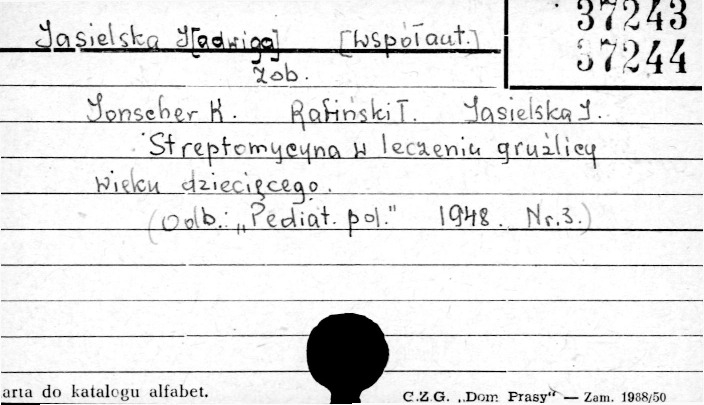 37243
37244
Jasielska J[adwiga] [współaut.]
zob.
Jonscher K. Rafiński T. Jasielska J.
Streptomycyna w leczeniu gruźlicy
wieku dziecięcego.
(Odb.: „Pediat. pol." 1948. Nr. 3.)
arta do katalogu alfabet.
C.Z.G. „Dom Prasy" — Zam. 1988/50